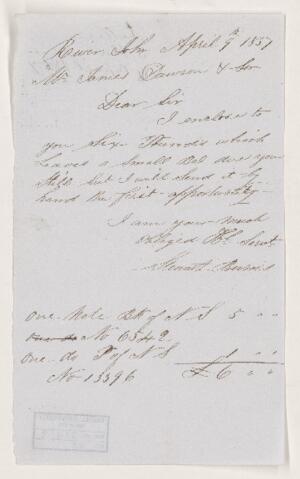 River John April 9th 1857
Mr James Dawson & Son
Dear Sir
I enclose to
you Six Pounds which
Leaves a Small Bal due you
Still but I will Send it by
hand the first opportunity
I am your much
obliged Sert
Burris
One Note Bk of N S 5 " "
No 6342
One do P of N S 1 " "
No 13396 £6 " "